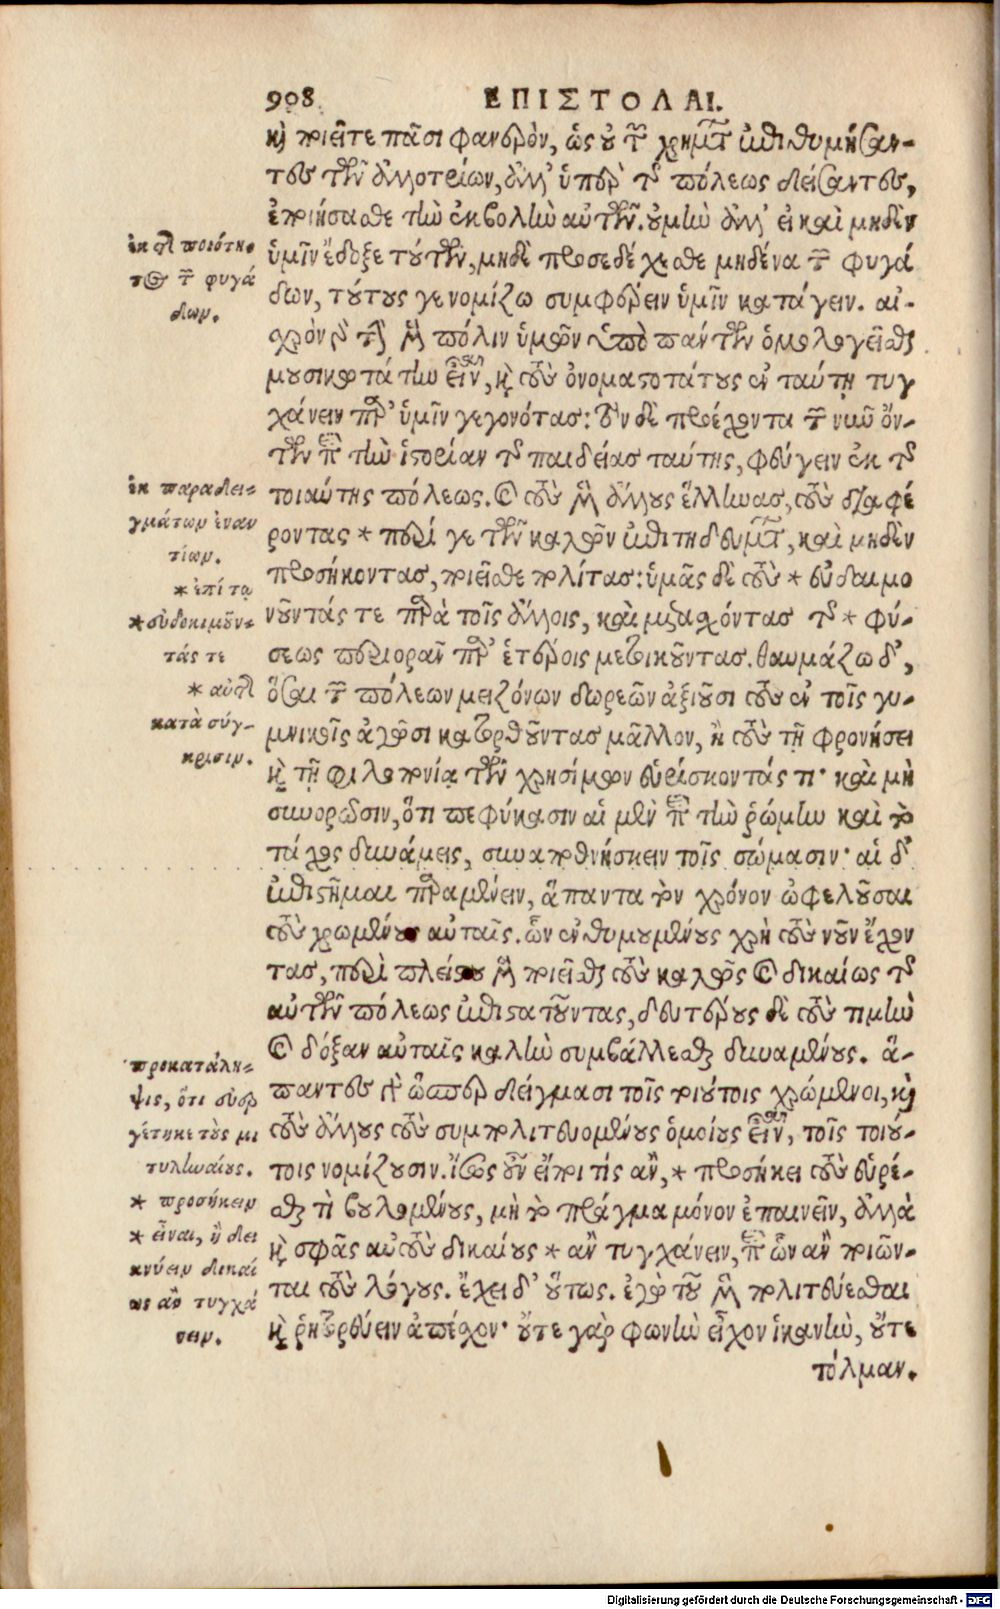 908 ΕΠΙΣΤΟΛΑΙ.
καὶ ποιεῖτε πᾶσι φανερὸν, ὡς οὐ τῶν χρημάτων ἐπιθυμήσαν-
τες τῶν ἀλλοτρίων, ἀλλ' ὑπὲρ τῆς πόλεως δείσαντες,
ἐποιήσασθε τὴν ἐκβολὴν αὐτῶν. οὐ μὴν ἀλλ' εἰ καὶ μηδὲν
ὑμῖν ἔδοξε τούτων, μηδὲ προσεδέχεσθε μηδένα τῶν φυγά
δων, τούτους γε νομίζω συμφέρειν ὑμῖν κατάγειν. αἰ-
σχρὸν γὰρ τὴν μὲν πόλιν ὑμῶν ὑπὸ πάντων ὁμολογεῖσθαι
μουσικωτάτην εἶναι, καὶ τοὺς ὀνομαστοτάτους ἐν ταύτῃ τυγ
χάνειν παρ' ὑμῖν γεγονότας: τὸν δὲ προέχοντα τῶν νῦν ὄν-
των περὶ τὴν ἱστορίαν τῆς παιδείας ταύτης, φεύγειν ἐκ τῆς
τοιαύτης πόλεως. καὶ τοὺς μὲν ἄλλους ἕλληνας, τοὺς διαφέ
ροντας * περί γε τῶν καλῶν ἐπιτηδευμάτων, καὶ μηδὲν
προσήκοντας, ποιεῖσθε πολίτας: ὑμᾶς δὲ τοὺς * εὐδαιμο
νοῦντάς τε παρὰ τοῖς ἄλλοις, καὶ μετασχόντας τῆς * φύ-
σεως περιορᾶν παρ' ἑτέροις μετοικοῦντας. θαυμάζω δ',
ὅσαι τῶν πόλεων μειζόνων δωρεῶν ἀξιοῦσι τοὺς ἐν τοῖς γυ-
μνικοῖς ἀγῶσι κατορθοῦντας μᾶλλον, ἢ τοὺς τῇ φρονήσει
καὶ τῇ φιλοπονίᾳ τῶν χρησίμων εὑρίσκοντάς τι· καὶ μὴ
συνορῶσιν, ὅτι πεφύκασιν αἱ μὲν περὶ τὴν ῥώμην καὶ τὸ
τάχος δυνάμεις, συναποθνήσκειν τοῖς σώμασιν· αἱ δ'
ἐπιστῆμαι παραμένειν, ἅπαντα τὸν χρόνον ὠφελοῦσαι
τοὺς χρωμένους αὐταῖς. ὧν ἐνθυμουμένους χρὴ τοὺς νοῦν ἔχον
τας, περὶ πλείστου μὲν ποιεῖσθαι τοὺς καλῶς καὶ δικαίως τῆς
αὑτῶν πόλεως ἐπιστατοῦντας, δευτέρους δὲ τοὺς τιμὴν
καὶ δόξαν αὐταῖς καλὴν συμβάλλεσθαι δυναμένους. ἅ-
παντες γὰρ ὥσπερ δείγμασι τοῖς τοιούτοις χρώμενοι, καὶ
τοὺς ἄλλους τοὺς συμπολιτευομένους ὁμοίους εἶναι, τοῖς τοιού-
τοις νομίζουσιν. ἴσως οὖν εἴποι τίς ἂν, * προσήκει τοὺς εὑρέ-
σθαι τὶ βουλομένους, μὴ τὸ πρᾶγμα μόνον ἐπαινεῖν, ἀλλὰ
καὶ σφᾶς αὐτοὺς δικαίους * ἂν τυγχάνειν, περὶ ὧν ἂν ποιῶν-
ται τοὺς λόγους. ἔχει δ' οὕτως. ἐγὼ τοῦ μὲν πολιτεύεσθαι
καὶ ῥητορεύειν ἀπέσχον· οὔτε γὰρ φωνὴν εἶχον ἱκανὴν, οὔτε
τόλμαν.
ἐκ τῆς ποιότη-
τος τῶν φυγά
δων.
ἐκ παραδει-
γμάτων ἐναν
τίων.
* ἐπί τῳ
* εὐδοκιμοῦν-
τάς τε
* αὐτῆς
κατὰ σύγ-
κρισιν.
προκατάλη-
ψις, ὅτι εὐερ
γέτηκε τοὺς μι
τυληναίους.
* προσήκειν
* εἶναι, ἢ δει
κνύειν δικαί
ως ἂν τυγχά
νειν.
Digitalisierung gefördert durch die Deutsche Forschungsgemeinschaft - DFG